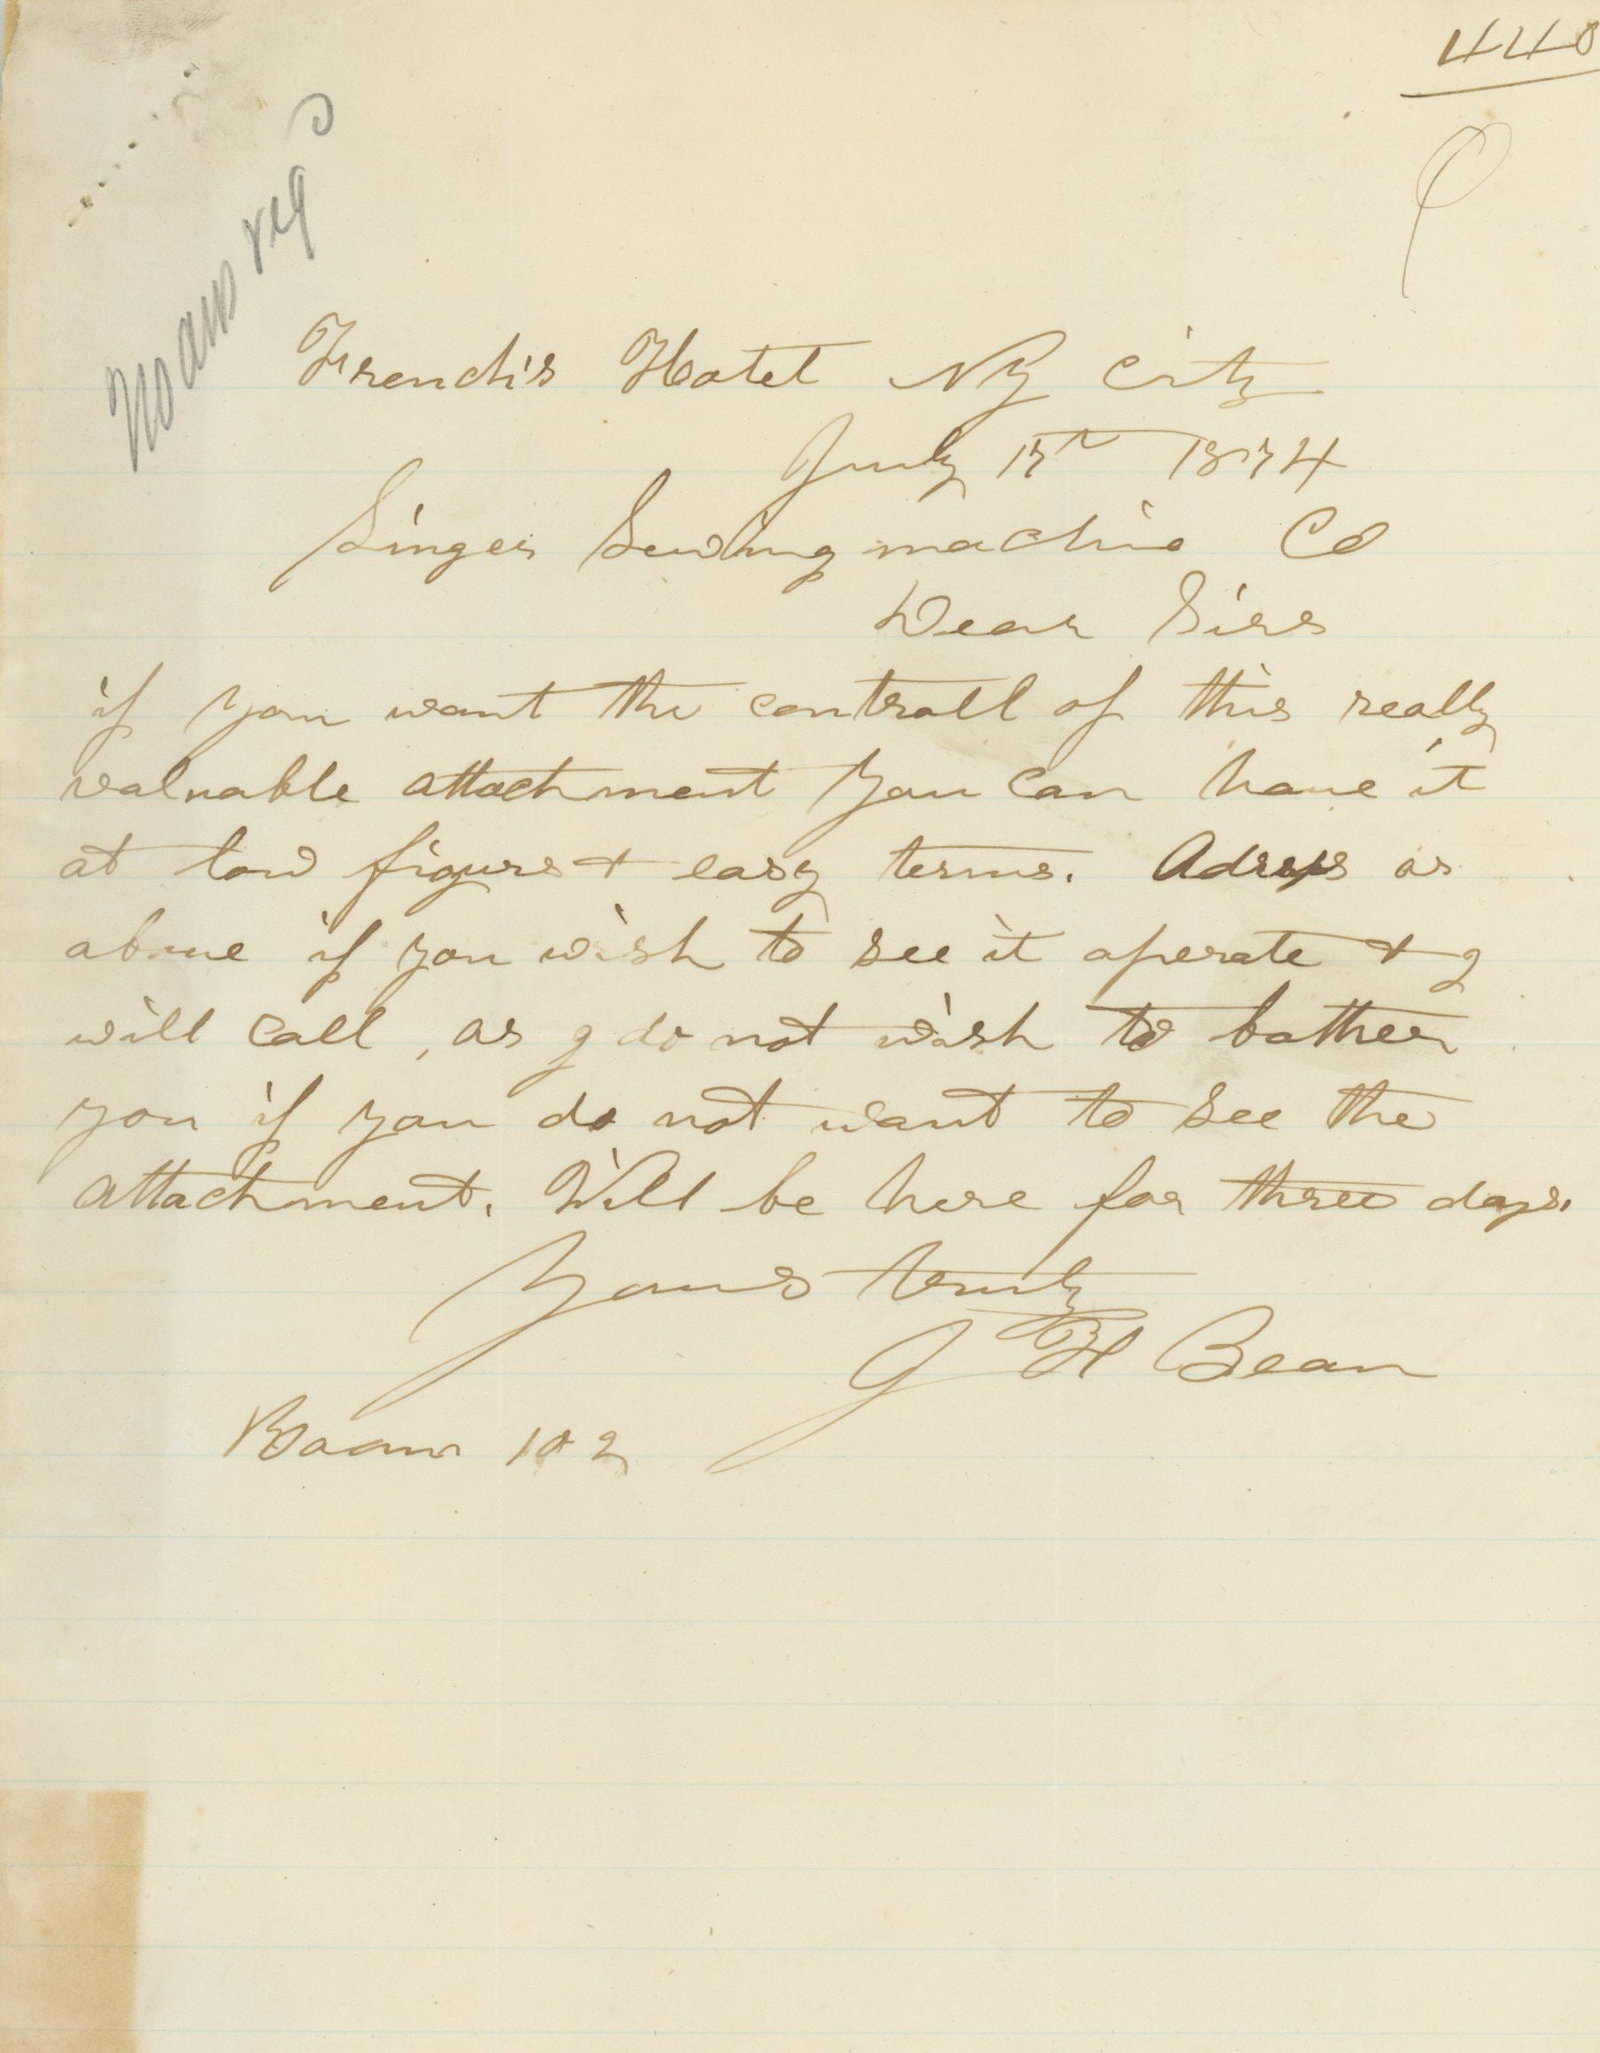 440
No ans reqd
French's Hotel NY City
July 17th 1874
Singer Sewing machine Co
Dear Sirs
if you want the controll of this really
valuable attachment you can have it
at low figures + easy terms. Adress as
above if you wish to see it operate + I
will call, as I do not wish to bother
you if you do not want to see the
attachment. Will be here for three days.
Yours truly
J H Bean
Room 102